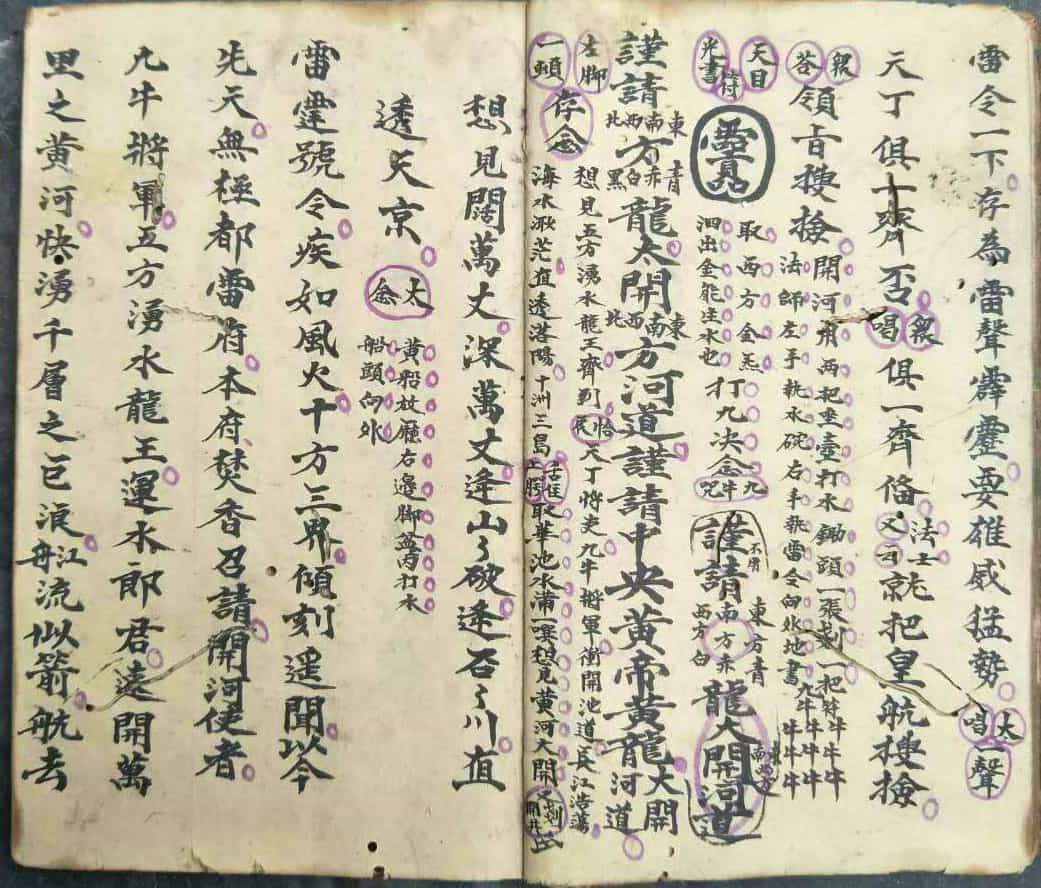 雷令一下存為雷聲霹靂要雄威猛勢
太唱
一聲
天丁俱一齊否
俱一齊俻
法士
又云
就把皇航搜檢
答
領旨搜檢
開河用兩把坐壺打水鋤頭一張
一把
牛牛牛牛
法師左手執水碗右手執雷令向外地書九牛牛牛
牛牛牛牛
天目
光書
符
取西方金炁
泗出金能生水也
打九決念
九牛咒
謹請
不用
東方青
南方赤
西方白
龍大開河道
謹請
東南西北
方
青赤白黑
龍大開
東南西北
方河道謹請中央黃帝黃龍
大開
河道
左脚
一頓
存念
想見五方湧水龍王齊到
天丁將吏九牛將軍衝開池道長江浩蕩
海水渺茫直透洛陽十洲三島
取華池水
一噀想見黃河大開
想見闊萬丈深萬丈逢山々破逢石々川直
透天京
太念
黃船放廳右邊脚盆內打水
船頭向外
雷霆號令疾如風火十方三界傾刻遥聞以今
先天無極都雷府本府焚香召請開河使者
九牛將軍五方湧水龍王運水郎君速開萬
里之黃河快湧千層之巨浪
江舟
流似箭航去